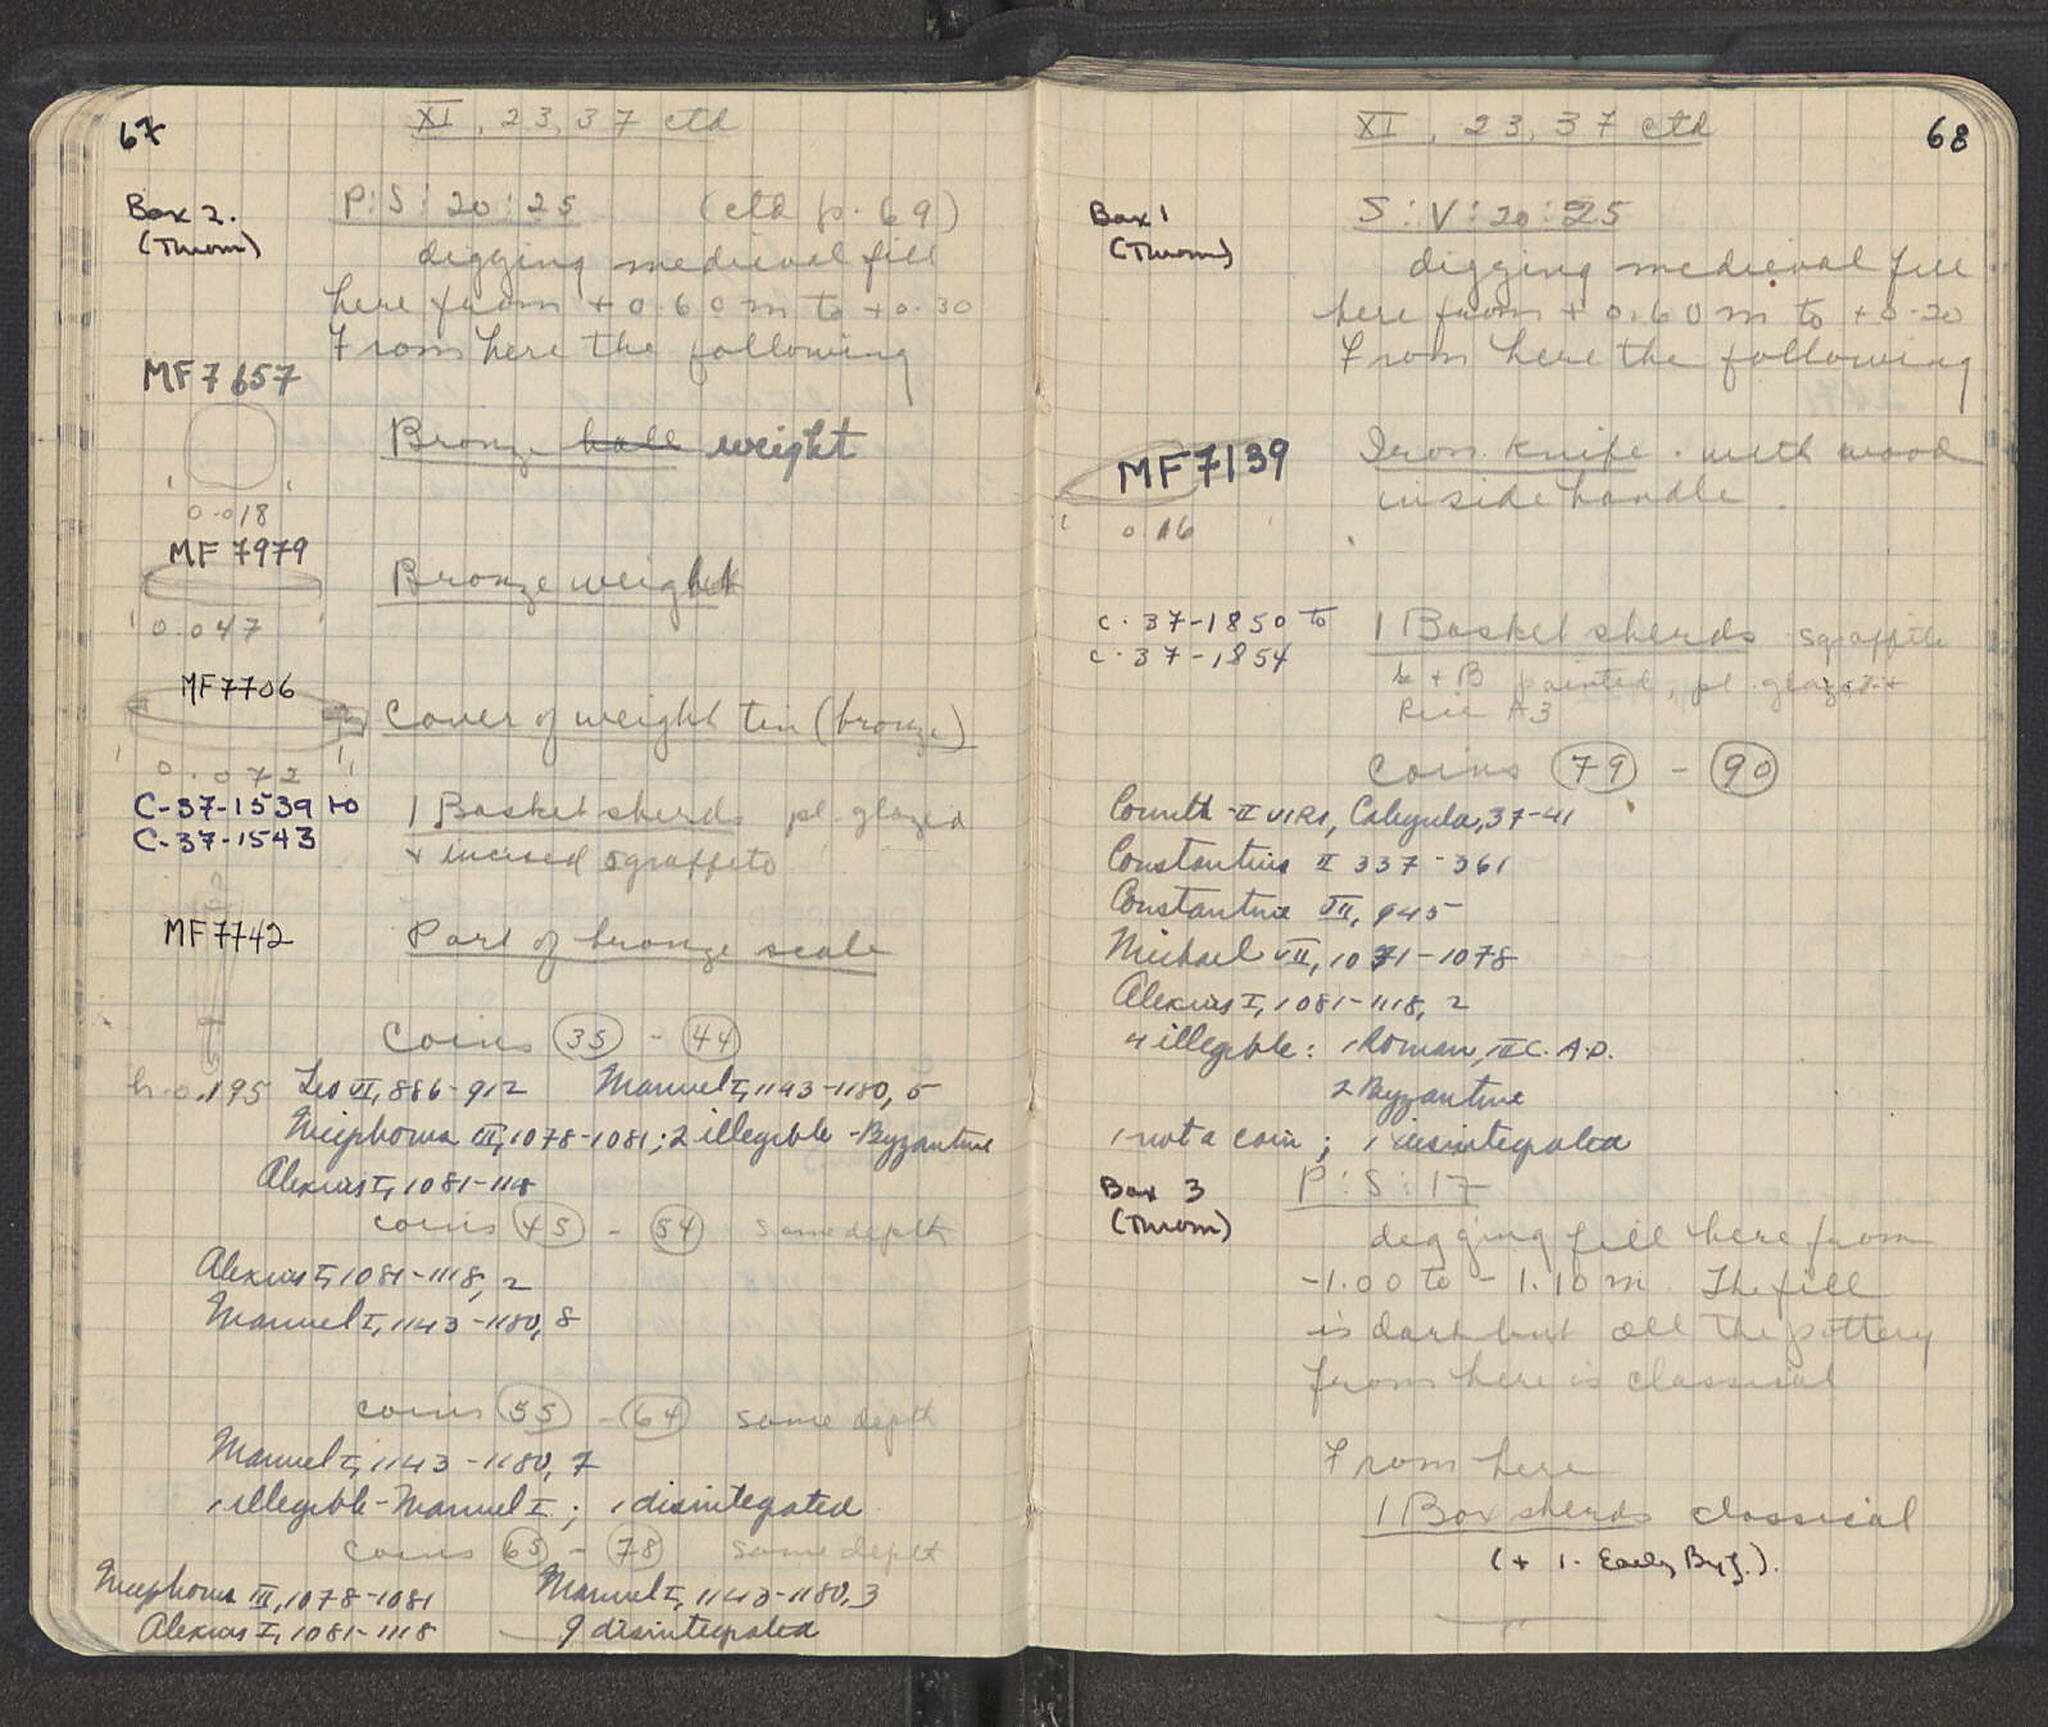 67
XI, 23, 37 ctd
Box 2.
(Throm)
P:S:20:25 (ctd p. 69)
digging medieval fill
here from + 0.60 m to +0.30
From here the following
MF 7657
Bronze ball weight
0.018
MF 7979
Bronze weight
0.047
MF7706
Cover of weight tin (bronze)
0.072
C-37-1539 to
C-37-1543
1 Basket sherds pl. glazed
+ incised sgraffito
MF7742
Part of bronze scale
Coins 35 - 44
h.0.195 Leo VI, 886-912 Manuel I, 1143-1180, 5
Nicephorus III, 1078-1081; 2 illegible - Byzantine
Alexius I, 1081-1118
coins 45 - 54 same depth
Alexius I, 1081-1118, 2
Manuel I, 1143-1180, 8
coins 55 - 64 same depth
Manuel I, 1143-1180, 7
1 illegible - Manuel I; 1 disintegated
coins 65 - 78 same depth
Nicephorus III, 1078-1081 Manuel I, 1143-1180, 3
Alexius I, 1081-1118 9 disintegrated
XI, 23, 37 ctd
68
Box 1
(Throm)
S:V:20:25
digging medieval fill
here from + 0.60 m to +0.20
From here the following
MF7139
Iron knife. with wood
inside handle.
0.16
C.37-1850 to
C.37-1854
1 Basket sherds sgraffito
+ B painted, pl. glazed +
A3
Coins 79 - 90
Corinth - II VIRI, Caligula, 37-41
Constantius II 337-361
Constantine VII, 945
Michael VII, 1071-1078
Alexius I, 1081-1118, 2
4 illegible: 1 Roman, III C. A.D.
2 Byzantine
1 not a coin; 1 disintegrated
Box 3
(Throm)
P:S:17
digging fill here from
-1.00 to -1.10 m. The fill
is dark but all the pottery
from here is classical
From here
1 Box sherds classical
(+ 1. Early Byz.).